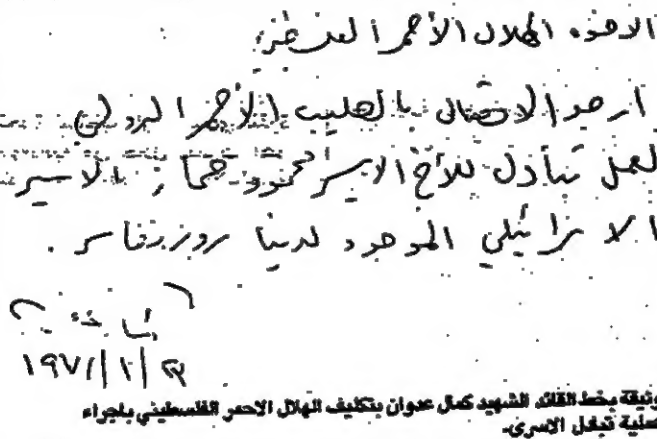 الاخوه الهلال الأحمر العزيز
ارجو الاتصال بالصليب الأحمر الدولي
لعمل تبادل للأخ الاسير محمود حجازي بالاسير
الاسرائيلي الموجود لدينا روزنفاسر .
١٩٧١/١/
وثيقة بخط القائد الشهيد كمال عدوان بتكليف الهلال الاحمر الفلسطيني باجراء
عملية تبادل الاسرى.